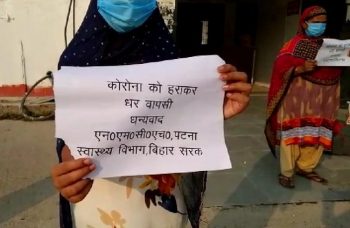 कोरोना को हराकर
धर वापसी
धन्यवाद
एन०एम०सी०एच०, पटना
स्वास्थ्य विभाग, बिहार सरक